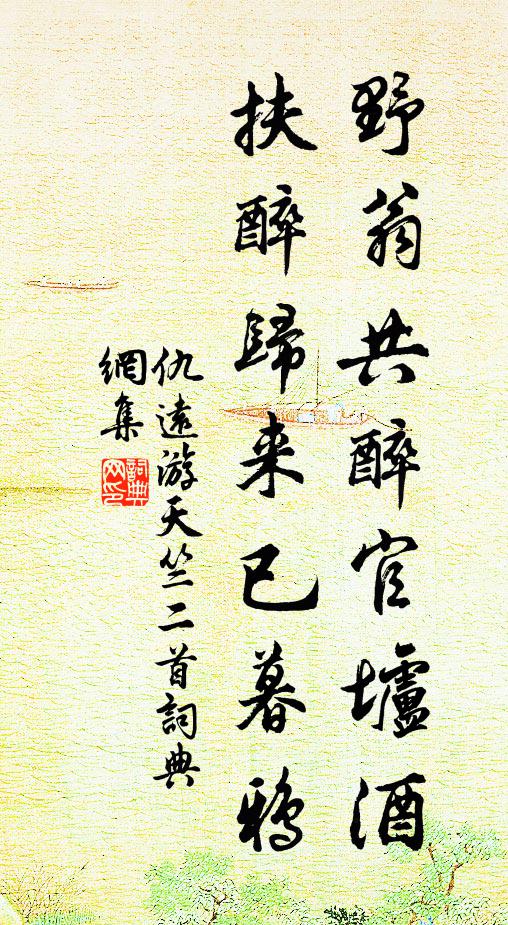 野翁共醉官壚酒
扶醉歸来已暮鴉
仇遠游天竺二首詞典
網集
詞典
网印